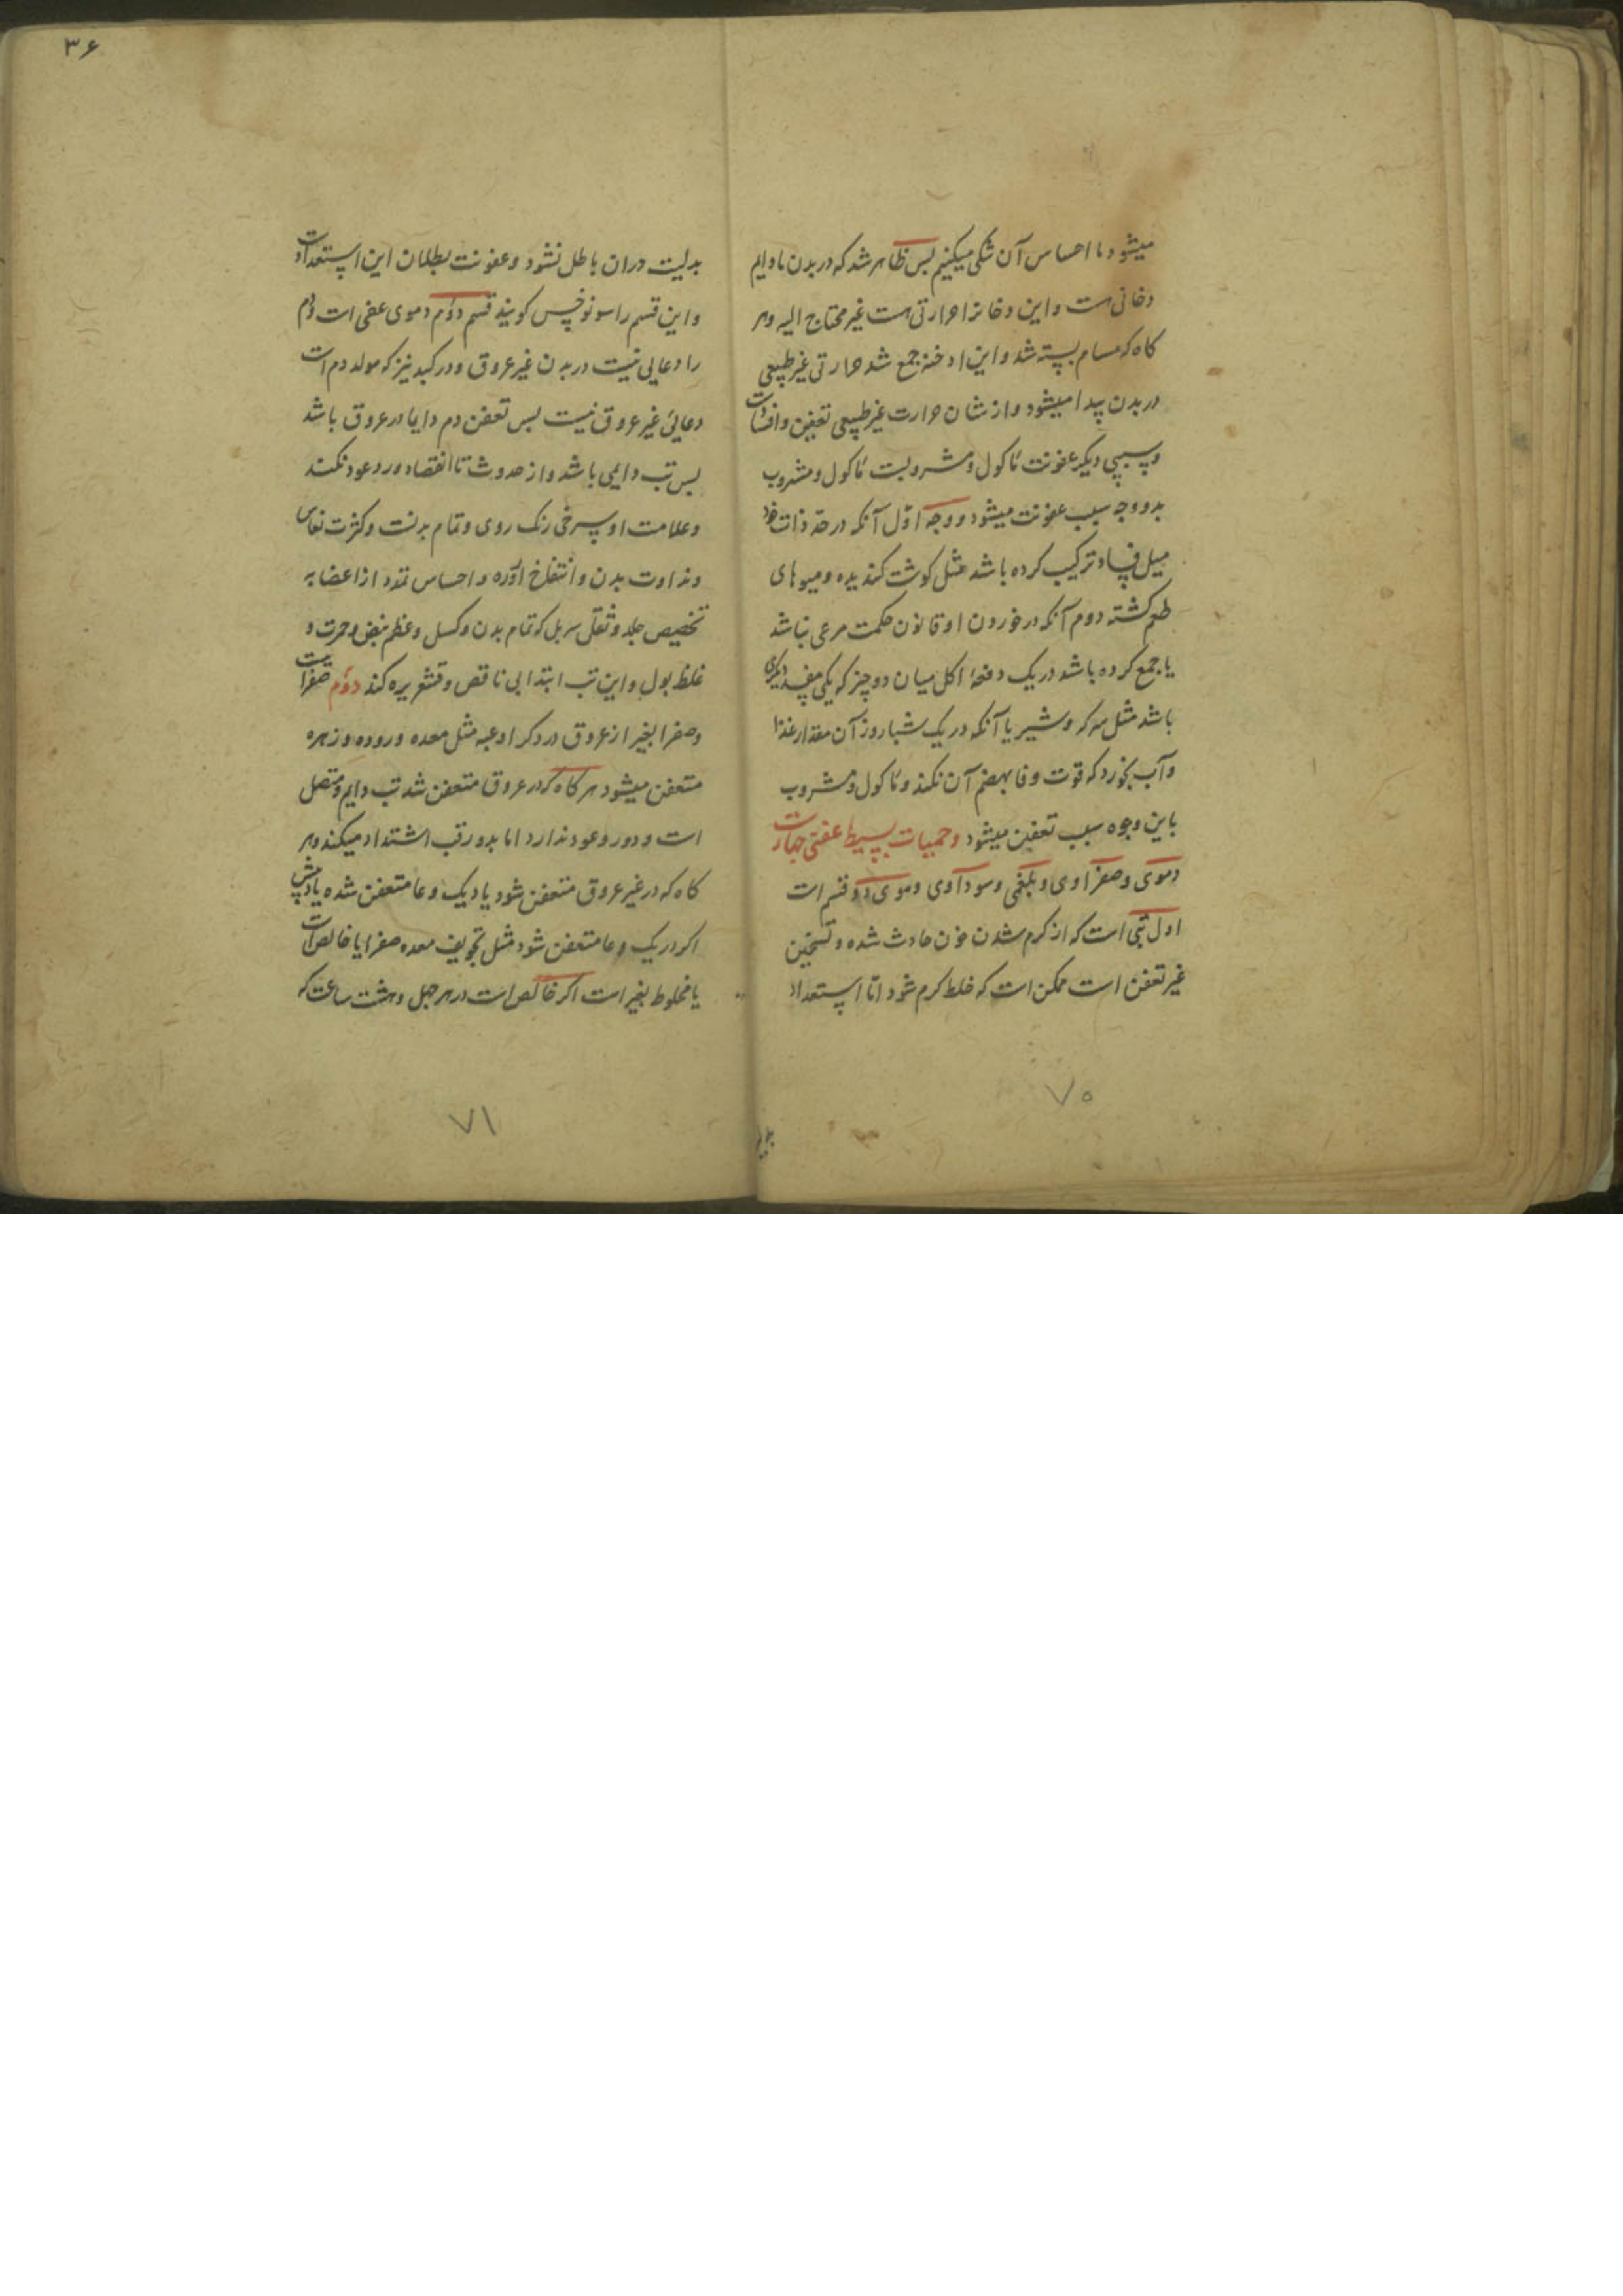 میشود ما احساس آن شکی میکنیم بس ظاهر شد که در بدن ما دایم
دخانی هست و این دخانرا حرارتی هست غیر محتاج الیه و هر
کاه که مسام بسته شد و این ادخنه جمع شد حرارتی غیر طبیعی
در بدن پیدا میشود و از شان حرارت غیر طبیعی تعفین و افساد است
و سببی دیکر عفونت ماکول و مشروبست ماکول و مشروب
بدو وجه سبب عفونت میشود و وجه اول آنکه در حد ذات خود
میل فساد ترکیب کرده باشد مثل کوشت کندیده و میوهای
طعم کشته دوم آنکه در خوردن او قانون حکمت مرعی نباشد
یا جمع کرده باشد در یک دفعهٔ اکل میان دو چیز که یکی مفسد دیکری
باشد مثل سرکه و شیر یا آنکه در یک شبا روز آن مقدار غذا
و آب بخورد که قوت وفا بهضم آن نکند و ماکول و مشروب
باین وجوه سبب تعفین میشود و حمیات بسیط عفنی چهارست
دموی و صفراوی و بلغمی و سوداوی دموی دو قسم است
اول تبی است که از کرم شدن خون حادث شده و تسخین
غیر تعفن است ممکن است که خلط کرم شود اما استعداد
۷۰
۳۶
بدلیت دران باطل نشود و عفونت بطلان این استعداد است
و این قسم را سونوخس کویند قسم دوم دموی عفنی است و دم
را وعایی نیست در بدن غیر عروق و در کبد نیز که مولد دم است
وعائی غیر عروق نیست بس تعفن دم دایما در عروق باشد
بس تب دایمی باشد و از حدوث تا انقضا دور و عود نکند
و علامت او سرخی رنک روی و تمام بدنست و کثرت نعاس
و نداوت بدن و انتفاخ اورده و احساس تمدد از اعضا به
تخصیص جلد و ثقل سر بل که تمام بدن و کسل و عظم نبض و حمرت و
غلظ بول و این تب ابتدا بی ناقض و قشعریره کند دوم صفراست
و صفرا بغیر از عروق در دکر اوعیه مثل معده و روده و زهره
متعفن میشود هر کاه که در عروق متعفن شد تب دایم و متصل
است و دور و عود ندارد اما بدور تب اشتداد میکند و هر
کاه که در غیر عروق متعفن شود یا در یک وعا متعفن شده یا در بیش
اکر در یک وعا متعفن شود مثل تجویف معده صفرا یا خالص است
یا مخلوط بغیر است اکر خالص است در هر چهل و هشت ساعت که
۷۱